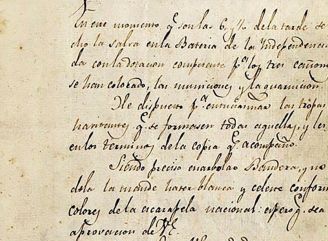 En este momento q.e son las 6 ½ de la tarde se
cho la salva en la Bateria de la Independencia
da con la dotacion competente p.a los tres cañone
se han colocado, las municiones y la guarnicion.
He dispuesto p.a entusiasmar las tropas
havitantes, q.e se formasen todas aquellas, y
en los terminos de la copia q.e acompaño.
Siendo preciso enarbolar Bandera, y no
dola la mandé hacer blanca y celeste conform
colores de la escarapela nacional: espero q.e sea
aprovacion de V.E.